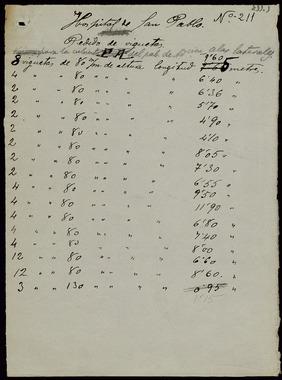 Hospital de San Pablo. Nº 211
Pedido de viguetas.
para la del pab. de alas laterales
8 viguetas de 80 m/m de altura longitud 9'60 metros.
4 " " 80 " " " 6'40 "
2 " " 80 " " " 6'36 "
2 " " 80 " " " 5'70 "
2 " " 80 " " " 4'90 "
2 " " 80 " " " 4'10 "
2 " " 80 " " " 8'05 "
2 " " 80 " " " 7'30 "
4 " " 80 " " " 6'55 "
4 " " 80 " " " 9'50 "
4 " " 80 " " " 11'90 "
4 " " 80 " " " 6'80 "
4 " " 80 " " " 7'40 "
4 " " 80 " " " 8'00 "
12 " " 80 " " " 6'60 "
12 " " 80 " " " 8'60 "
3 " " 130 " " " 0'95 "
1'15